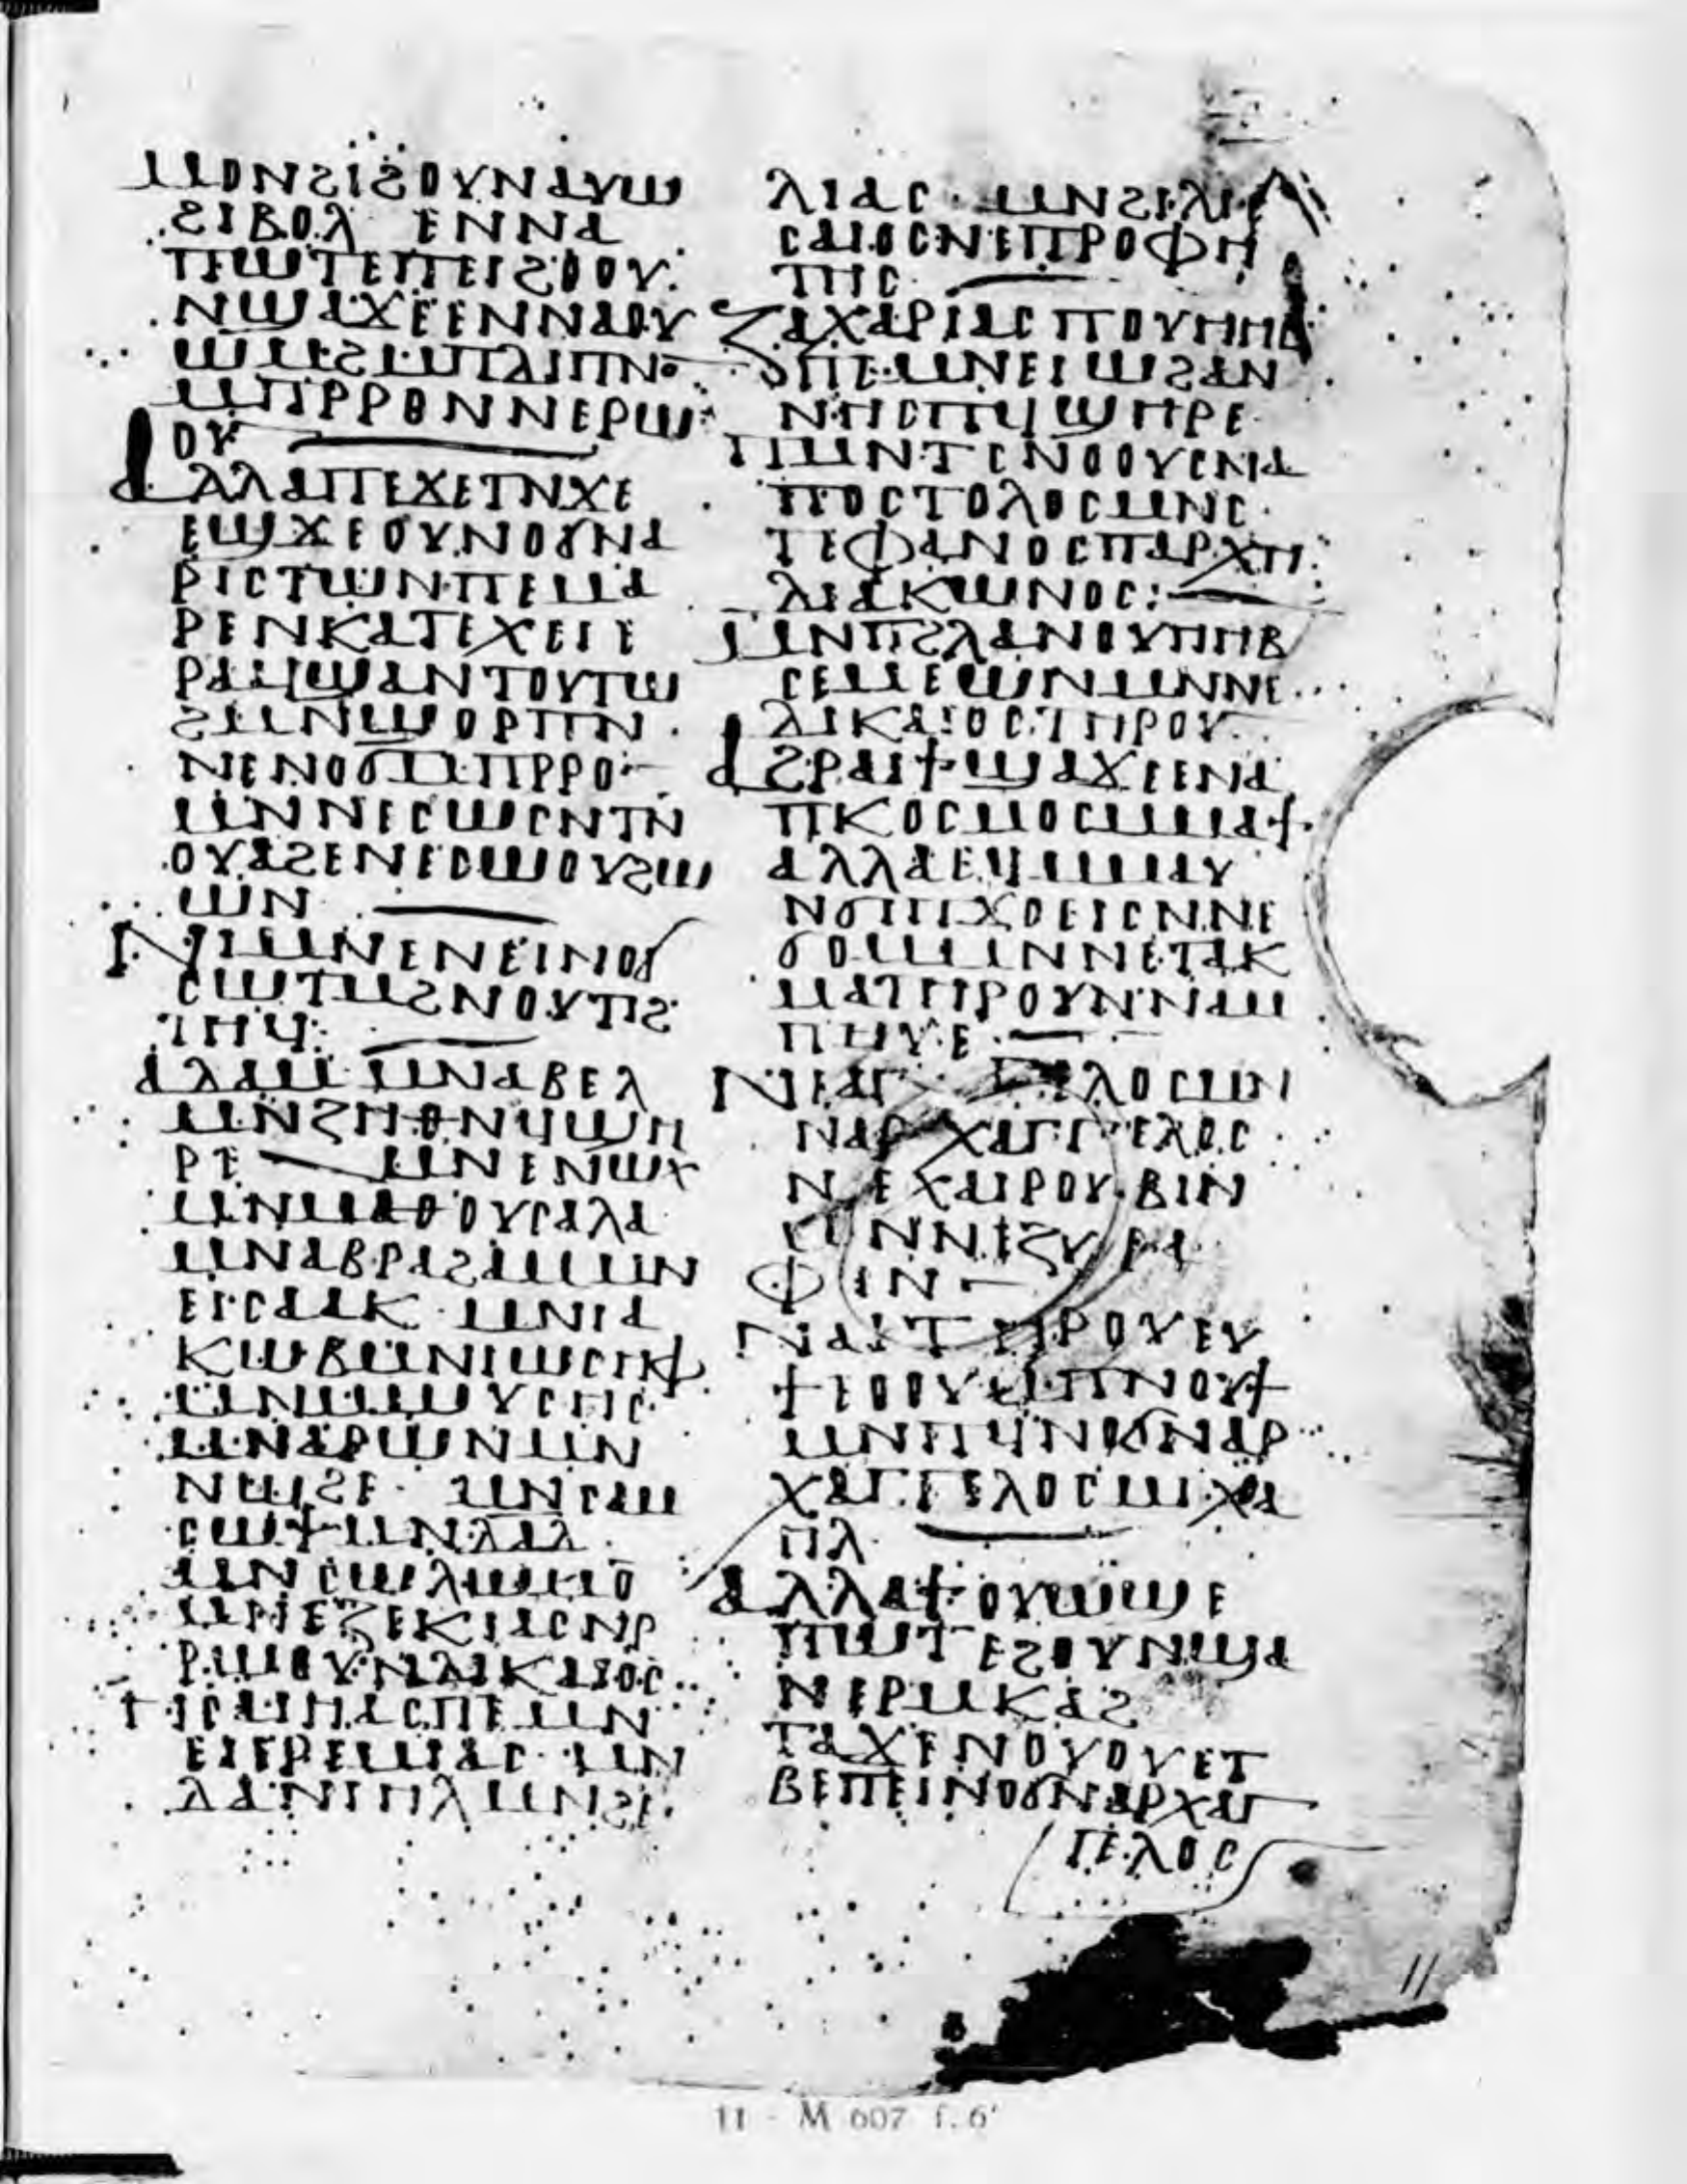 ⲙⲟⲛϩⲓϩⲟⲩⲛⲁⲩⲱ
ϩⲓⲃⲟⲗ ⲉⲛⲛⲁ
ⲡⲱⲧⲉⲡⲉⲓϩⲟⲟⲩ.
ⲛϣⲁϫⲉⲉⲛⲛⲁⲟⲩ
ⲙⲡⲣⲣⲟⲛⲛⲉⲣⲱ
ⲟⲩ
ⲁⲗⲗⲁⲡⲉϫⲉⲧⲛϫⲉ
ⲉϣϫⲉⲟⲩⲛⲟⲩⲛⲁ
ⲣⲓⲥⲧⲱⲛⲡⲉⲙⲁ
ⲣⲉⲛⲕⲁⲧⲉⲭⲉⲓⲉ
ⲣⲁϥϣⲁⲛⲧⲟⲩⲧⲱ
ϩⲙⲛϣⲟⲣⲡⲛ
ⲛⲉⲛⲟϭⲙⲡⲣⲣⲟ
ⲙⲛⲛⲉⲥⲱⲥⲛⲧⲛ
ⲟⲩⲁϩⲉⲛⲉⲥⲱⲟⲩϩⲱ
ⲱⲛ
ⲛⲓⲙⲛⲉⲛⲉⲓⲛⲟϭ
ⲥⲱⲧⲙϩⲛⲟⲩⲧⲏϩ
ⲧⲏϥ:
ⲁⲇⲁⲙ ⲙⲛⲁⲃⲉⲗ
ⲙⲛⲥⲏⲑⲛϥϣⲏ
ⲣⲉ ⲙⲛⲉⲛⲱⲭ
ⲙⲛⲙⲁⲑⲟⲩⲥⲁⲗⲁ
ⲙⲛⲁⲃⲣⲁϩⲁⲙⲙⲛ
ⲉⲓⲥⲁⲁⲕ ⲙⲛⲓⲁ
ⲕⲱⲃⲙⲛⲓⲱⲥⲏⲫ
ⲙⲛⲙⲱⲩⲥⲏⲥ
ⲙⲛⲁⲣⲱⲛⲙⲛ
ⲛⲱϩⲉ ⲙⲛⲥⲁⲙ
ⲥⲱⲯⲙⲛⲇⲁⲇ
ⲙⲛⲥⲱⲗⲱⲙⲟ
ⲙⲛⲉⲍⲉⲕⲓⲁⲥⲛⲣ
ⲣⲱⲟⲩⲛⲇⲓⲕⲁⲓⲟⲥ
ⲏⲥⲁⲓⲏⲁⲥⲡⲉⲙⲛ
ⲉⲓⲉⲣⲉⲙⲓⲁⲥ ⲙⲛ
ⲇⲁⲛⲓⲏⲗⲙⲛϩⲓ
ⲗⲓⲁⲥ ⲙⲛϩⲓⲗⲓⲉ
ⲥⲁⲓⲟⲥⲛⲉⲡⲣⲟⲫⲏ
ⲧⲏⲥ
ⲍⲁⲭⲁⲣⲓⲁⲥⲡⲟⲩⲏⲏⲃ
ⲡⲉⲙⲛⲉⲓⲱϩⲁⲛ
ⲛⲏⲥⲡϥϣⲏⲣⲉ
ⲡⲙⲛⲧⲥⲛⲟⲟⲩⲥⲛⲁ
ⲡⲟⲥⲧⲟⲗⲟⲥⲙⲛⲥ
ⲧⲉⲫⲁⲛⲟⲥⲡⲁⲣⲭⲏ
ⲇⲓⲁⲕⲱⲛⲟⲥ:
ⲙⲛⲡϩⲗⲗⲁⲛⲟⲩⲏⲏⲃ
ⲥⲉⲙⲉⲱⲛⲙⲛⲛⲉ
ⲇⲓⲕⲁⲓⲟⲥⲧⲏⲣⲟⲩ
ⲁϩⲣⲁⲓϯϣⲁϫⲉⲉⲛⲁ
ⲡⲕⲟⲥⲙⲟⲥⲙⲙⲁϯ
ⲁⲗⲗⲁⲉϥⲙⲙⲁⲩ
ⲛϭⲓⲡϫⲟⲉⲓⲥⲛⲛⲉ
ϭⲟⲙⲙⲛⲛⲉⲧⲁⲕ
ⲙⲁⲧⲏⲣⲟⲩⲛⲙⲡ
ⲡⲏⲩⲉ
ⲛⲉⲁⲅⲅⲉⲗⲟⲥⲙⲛ
ⲛⲁⲣⲭⲁⲅⲅⲉⲗⲟⲥ
ⲛⲉⲭⲁⲓⲣⲟⲩⲃⲓⲛ
ⲙⲛⲛⲉⲍⲩⲣⲁ
ⲫⲓⲛ
ⲛⲁⲓⲧⲏⲣⲟⲩⲉⲩ
ϯⲉⲟⲟⲩⲙⲡⲛⲟⲩϯ
ⲙⲛⲡϥⲛⲟϭⲛⲁⲣ
ⲭⲁⲅⲅⲉⲗⲟⲥⲙⲓⲭⲁ
ⲏⲗ
ⲁⲗⲗⲁϯⲟⲩⲱϣⲉ
ⲡⲱⲧ ⲉϩⲟⲩⲛϣⲁ
ⲛⲉⲣⲙⲕⲁϩ
ⲧⲁϫⲉⲛⲟⲩⲟⲩⲉⲧ
ⲃⲉⲡⲉⲓⲛⲟϭⲛⲁⲣⲭⲁⲅ
ⲅⲉⲗⲟⲥ
11
11 - M 607 f. 6ʳ